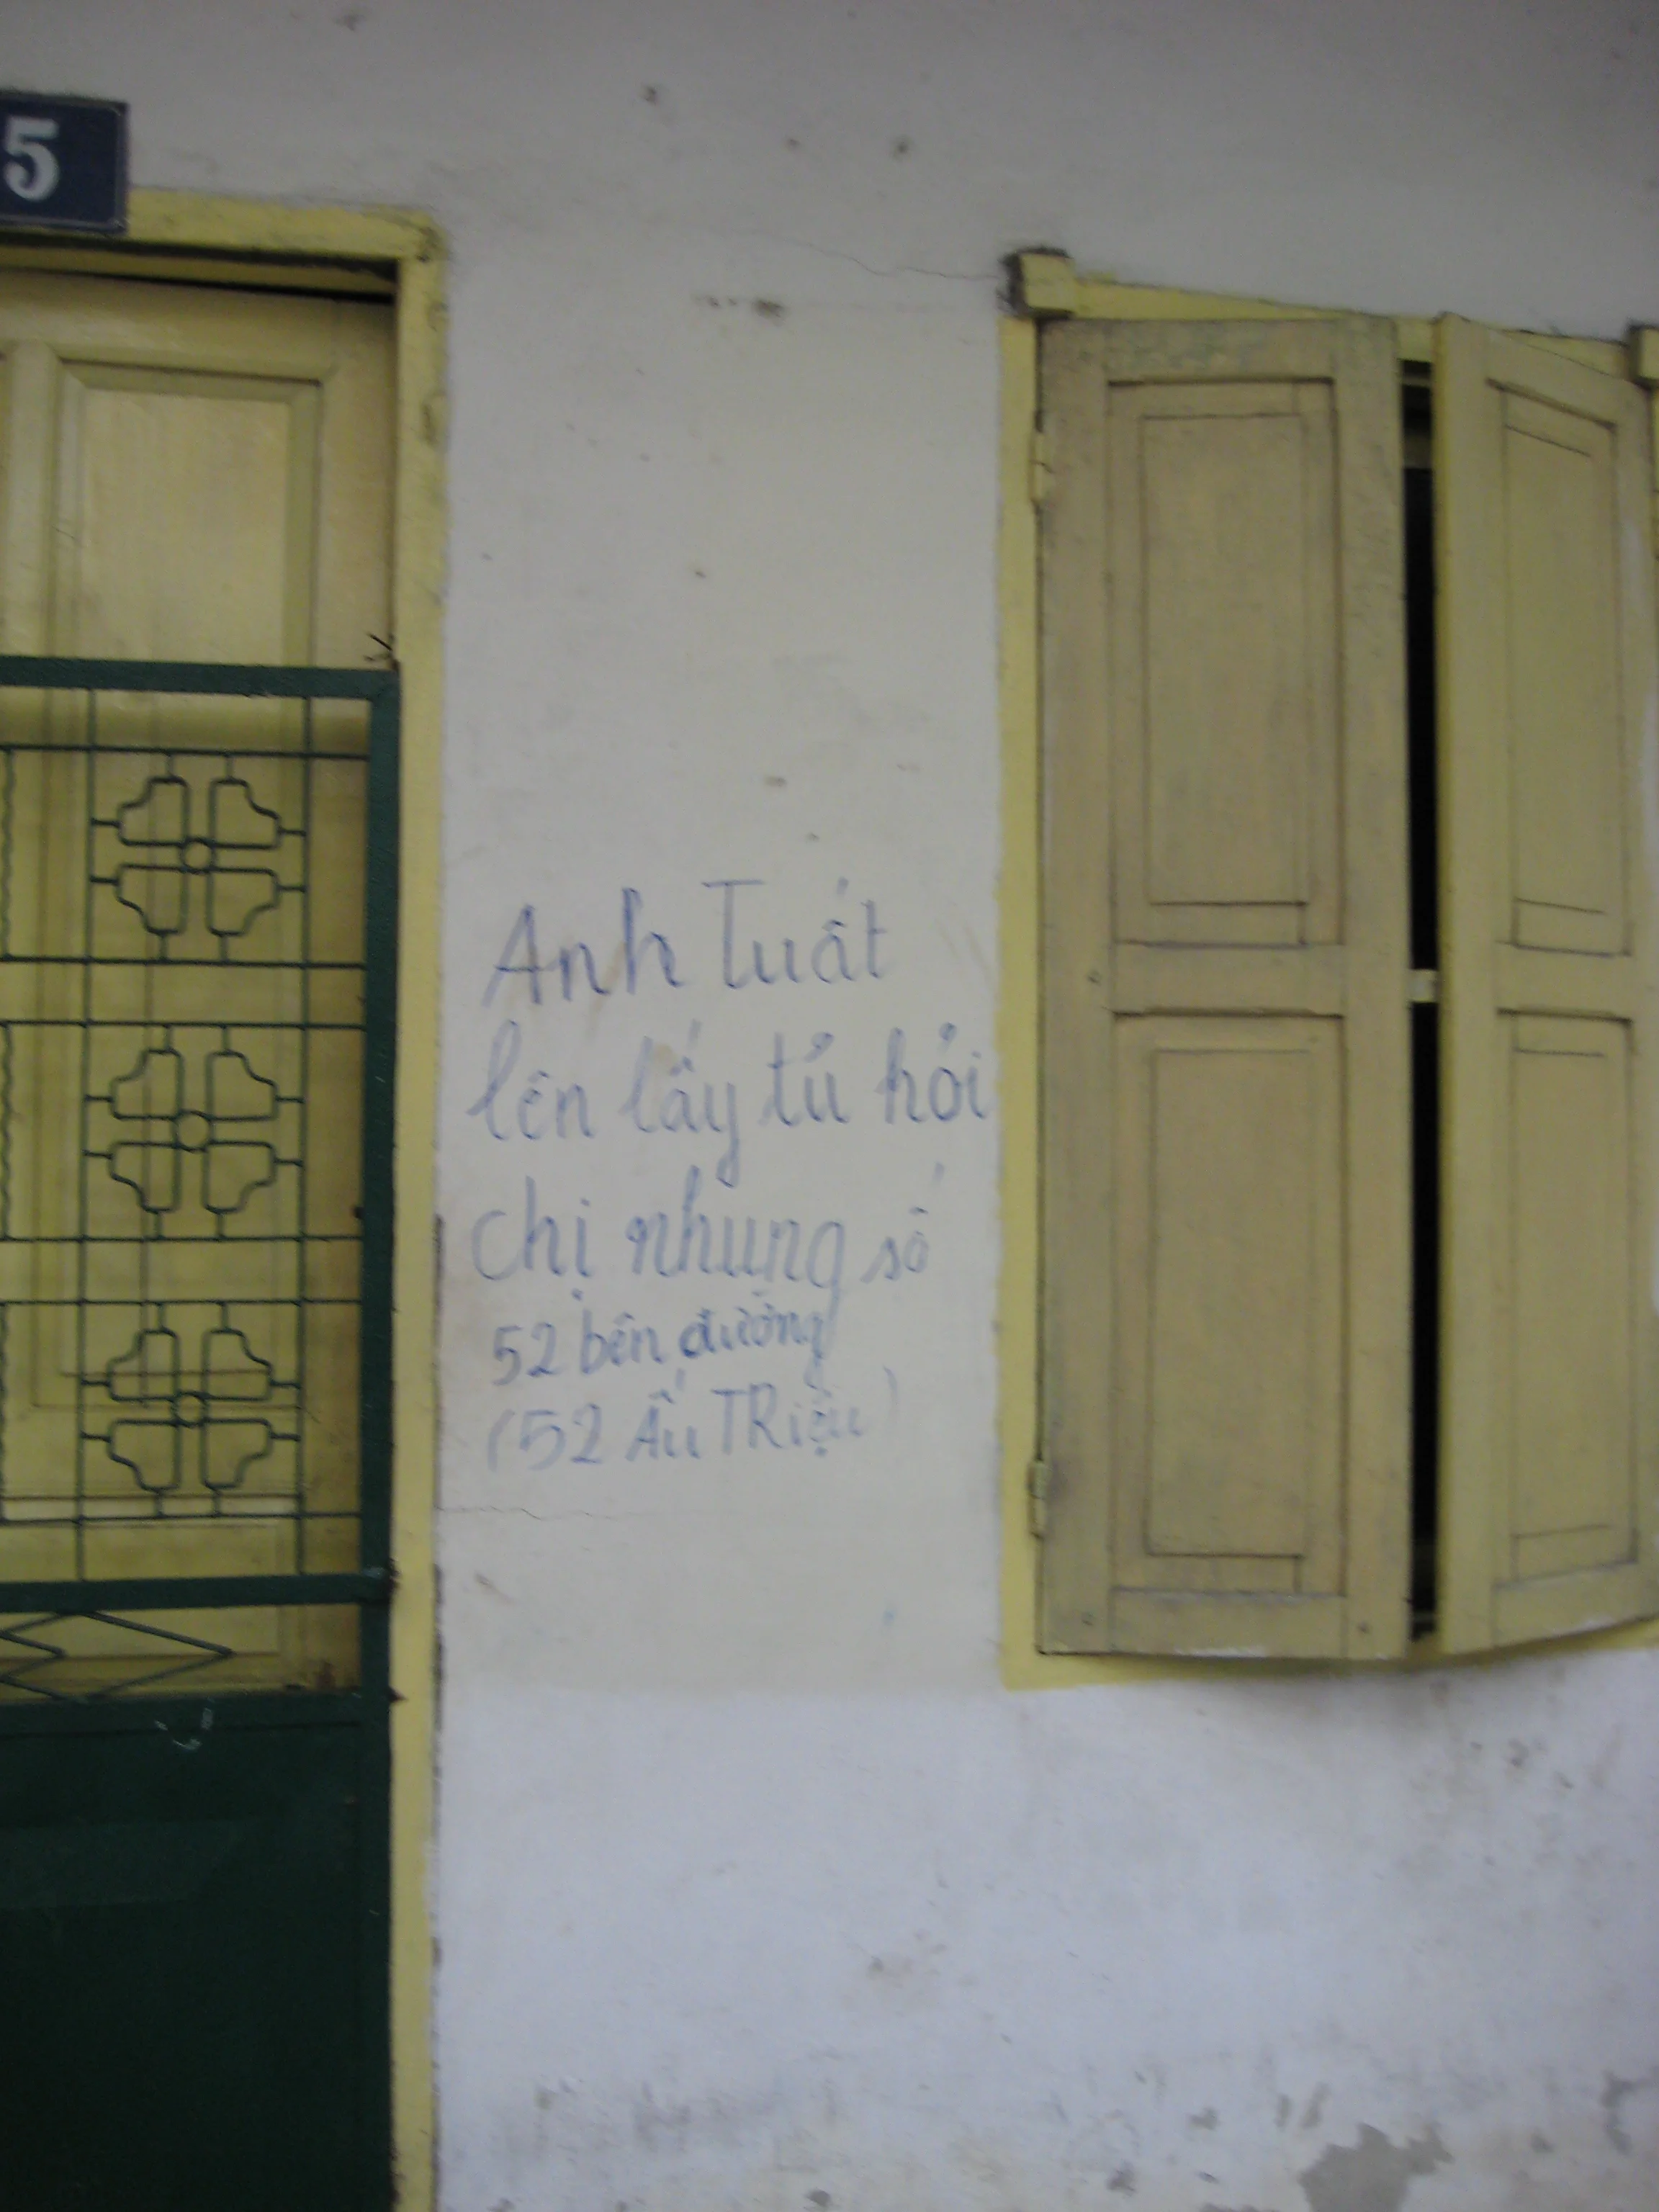 5
Anh Tuất
lên lấy tủ hỏi
chị nhung số
52 bên đường
(52 Ấu TRiệu)